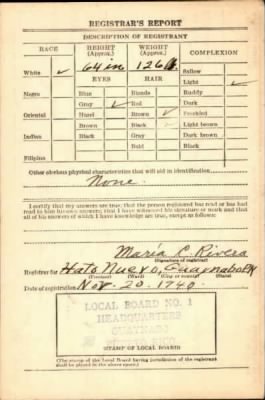 REGISTRAR'S REPORT
DESCRIPTION OF REGISTRANT
RACE HEIGHT (Approx.) WEIGHT (Approx.) COMPLEXION
White ✓ 64 in 126 Sallow
EYES HAIR Light ✓
Negro Blue Blonde Ruddy
Gray ✓ Red Dark
Oriental Hazel Brown ✓ Freckled
Brown Black Light brown
Indian Black Gray Dark brown
Bald Black
Filipino
Other obvious physical characteristics that will aid in identification
None.
I certify that my answers are true; that the person registered has read or has had
read to him his own answers; that I have witnessed his signature or mark and that
all of his answers of which I have knowledge are true, except as follows:
María C. Rivera
(Signature of registrar)
Registrar for Hato Nuevo, Guaynabo, P.R.
(Precinct) (Ward) (City or county) (State)
Date of registration Nov. 20. 1940.
LOCAL BOARD NO. 1
HEADQUARTERS
STAMP OF LOCAL BOARD
(The stamp of the Local Board having jurisdiction of the registrant
shall be placed in the above space.)